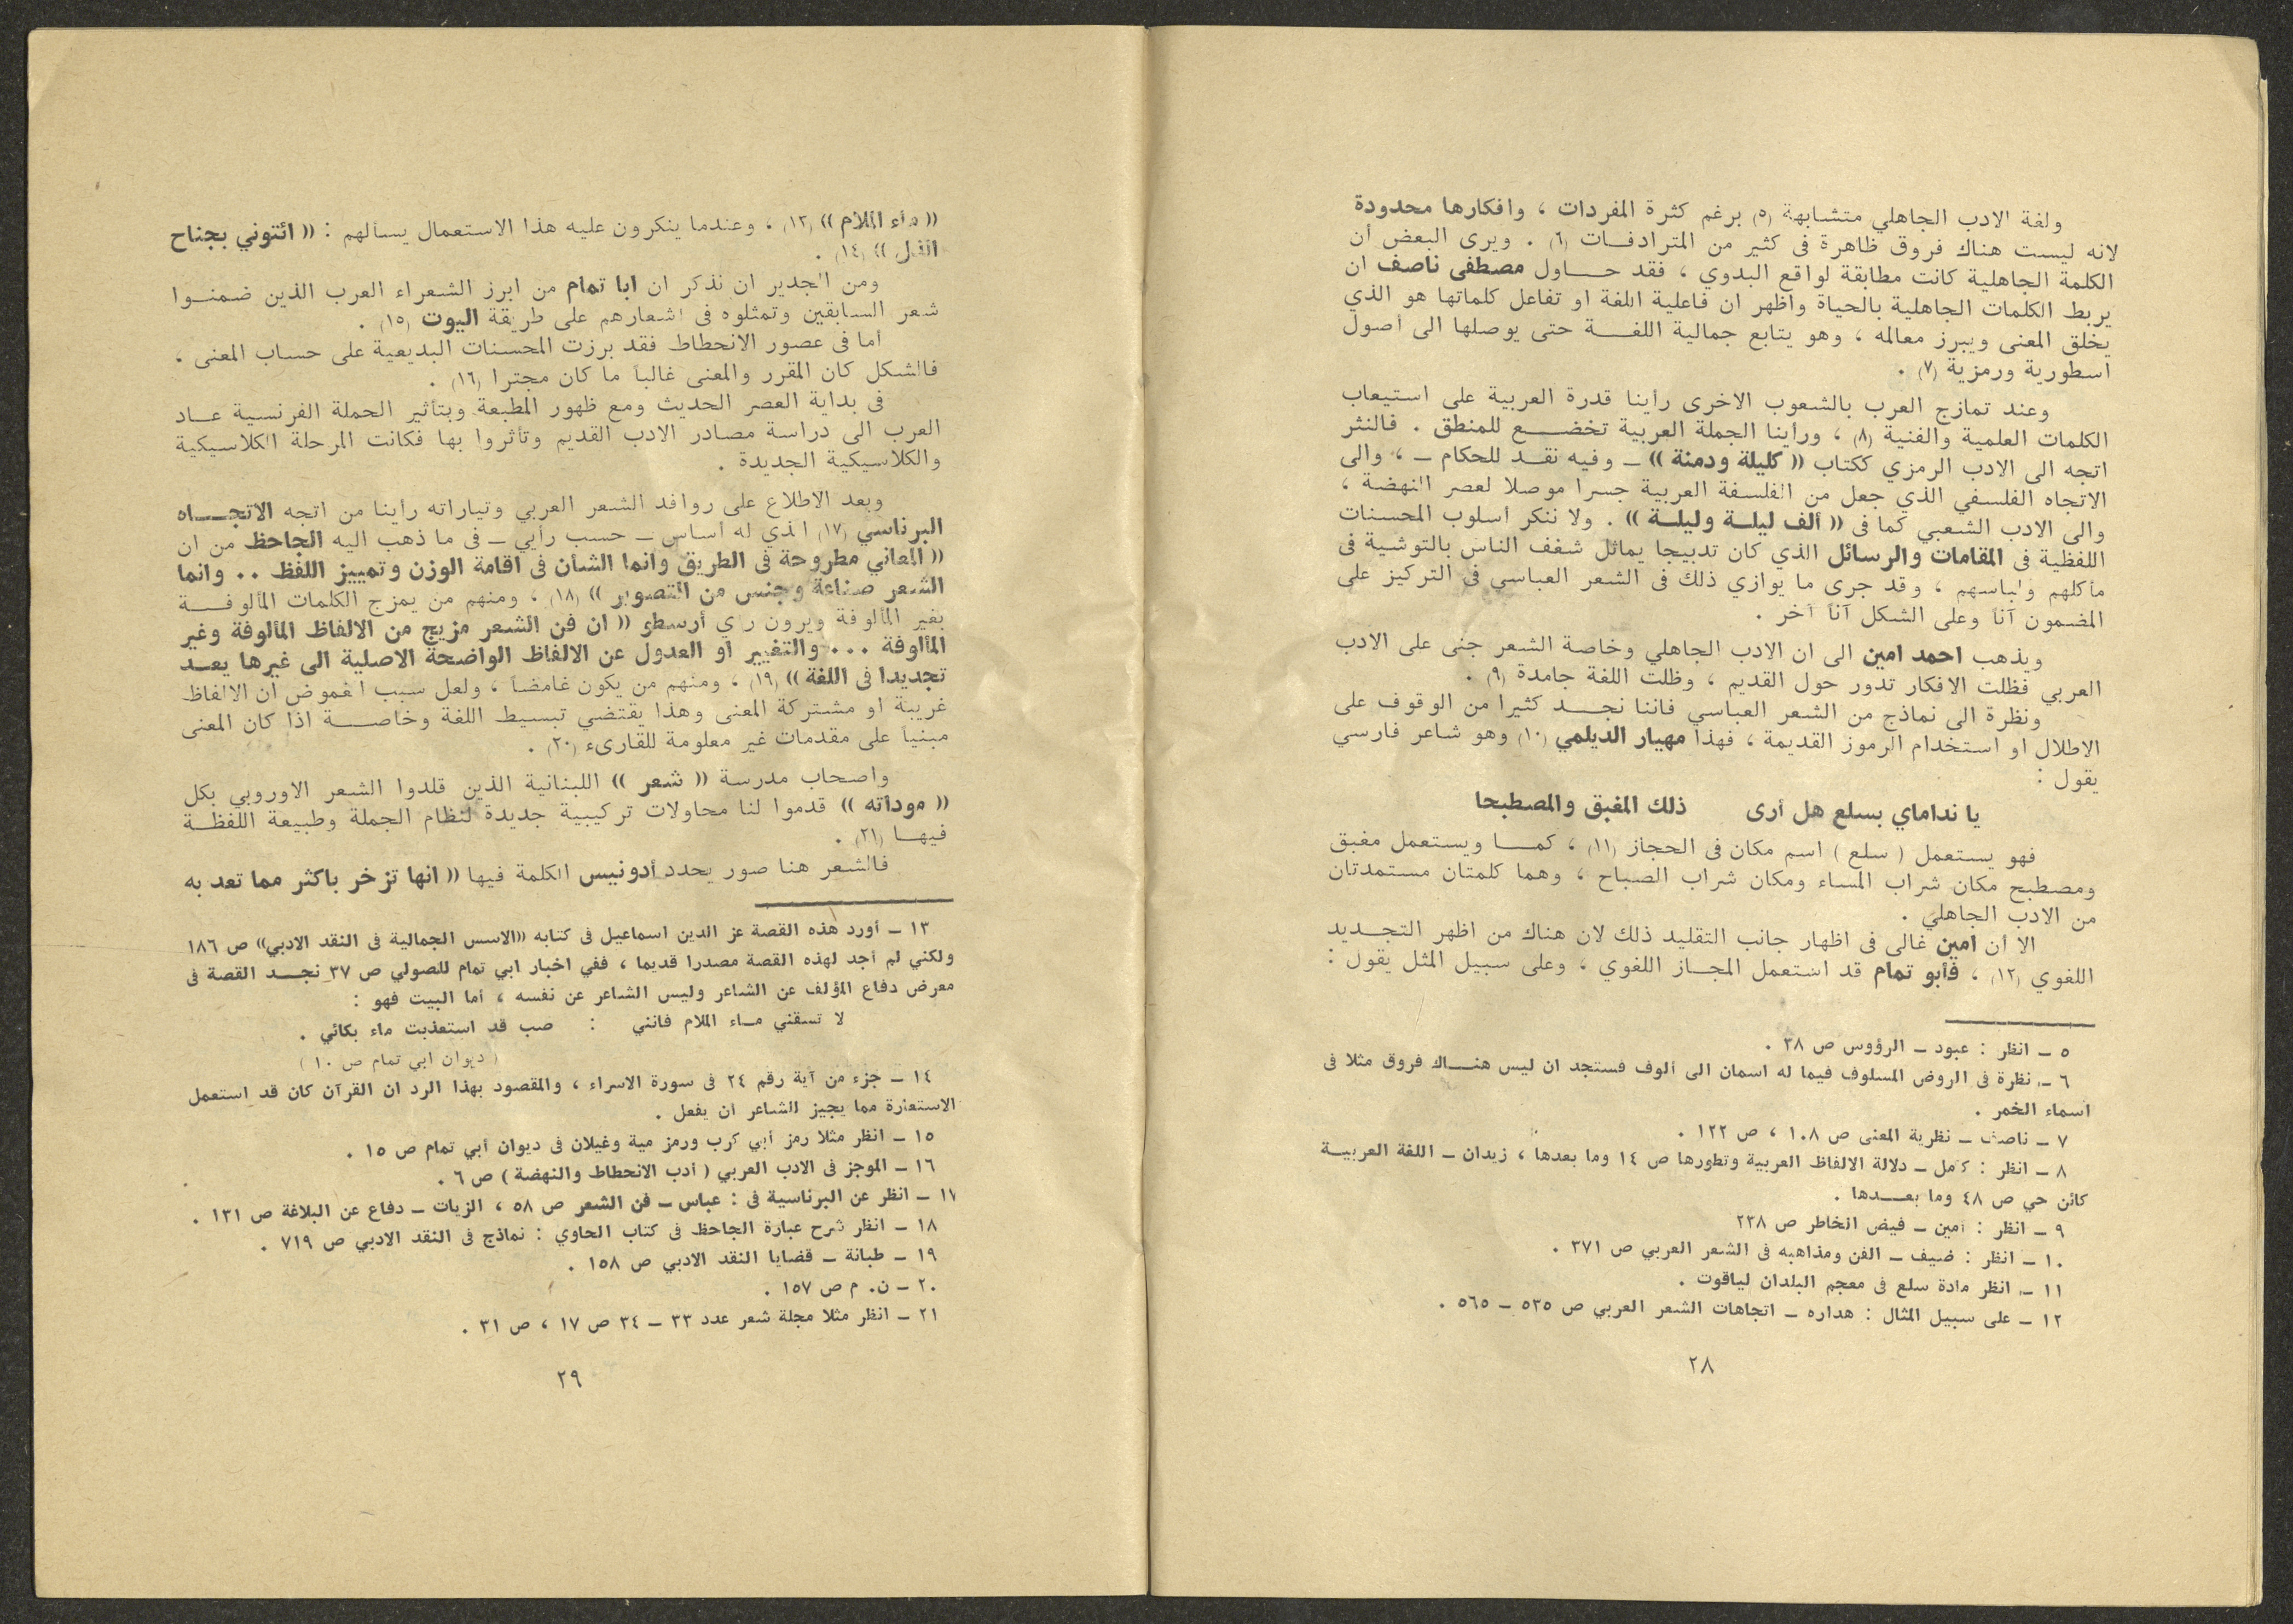 ولغة الادب الجاهلي متشابهة (٥) برغم كثرة المفردات ، وافكارها محدودة
لانه ليست هناك فروق ظاهرة فى كثير من المترادفـات (٦) . ويرى البعض أن
الكلمة الجاهلية كانت مطابقة لواقع البدوي ، فقد حـــاول مصطفى ناصف ان
يربط الكلمات الجاهلية بالحياة واظهر ان فاعلية اللغة او تفاعل كلماتها هو الذي
يخلق المعنى ويبرز معالمه ، وهو يتابع جمالية اللغـــة حتى يوصلها الى أصول
اسطورية ورمزية (٧) .
وعند تمازج العرب بالشعوب الاخرى رأينا قدرة العربية على استيعاب
الكلمات العلمية والفنية (٨) ، ورأينا الجملة العربية تخضـــع للمنطق . فالنثر
اتجه الى الادب الرمزي ككتاب (( كليلة ودمنة )) ـ وفيه نقـد للحكام ـ ، والى
الاتجاه الفلسفي الذي جعل من الفلسفة العربية جسرا موصلا لعصر النهضة ،
والى الادب الشعبي كما فى (( ألف ليلـة وليلـة )) . ولا ننكر أسلوب المحسنات
اللفظية فى المقامات والرسائل الذي كان تدبيجا يماثل شغف الناس بالتوشية فى
مأكلهم ولباسهم ، وقد جرى ما يوازي ذلك فى الشعر العباسي فى التركيز على
المضمون آناً وعلى الشكل آناً آخر .
ويذهب احمد امين الى ان الادب الجاهلي وخاصة الشعر جنى على الادب
العربي فظلت الافكار تدور حول القديم ، وظلت اللغة جامدة (٩) .
ونظرة الى نماذج من الشعر العباسي فاننا نجـــد كثيرا من الوقوف على
الاطلال او استخدام الرموز القديمة ، فهذا مهيار الديلمي (١٠) وهو شاعر فارسي
يقول :
يا نداماي بسلع هل أرى ذلك المغبق والمصطبحا
فهو يستعمل ( سلع ) اسم مكان فى الحجاز (١١) ، كمـــا ويستعمل مغبق
ومصطبح مكان شراب المساء ومكان شراب الصباح ، وهما كلمتان مستمدتان
من الادب الجاهلي .
الا أن امين غالى فى اظهار جانب التقليد ذلك لان هناك من اظهر التجـــديد
اللغوي (١٢) ، فأبو تمام قد استعمل المجـــاز اللغوي ، وعلى سبيل المثل يقول :
٥ ـ انظر : عبود ـ الرؤوس ص ٣٨ .
٦ ـ نظرة فى الروض المسلوف فيما له اسمان الى ألوف فستجد ان ليس هنـــاك فروق مثلا فى
اسماء الخمر .
٧ ـ ناصف ـ نظرية المعنى ص ١٠٨ ، ص ١٢٢ .
٨ ـ انظر : كامل ـ دلالة الالفاظ العربية وتطورها ص ١٤ وما بعدها ، زيدان ـ اللغة العربيــة
كائن حي ص ٤٨ وما بعـــدها .
٩ ـ انظر : أمين ـ فيض الخاطر ص ٢٣٨
١٠ ـ انظر : ضيف ـ الفن ومذاهبه فى الشعر العربي ص ٣٧١ .
١١ ـ انظر مادة سلع فى معجم البلدان لياقوت .
١٢ ـ على سبيل المثال : هداره ـ اتجاهات الشعر العربي ص ٥٣٥ ـ ٥٦٥ .
٢٨
(( ماء الملام )) (١٣) ، وعندما ينكرون عليه هذا الاستعمال يسألهم : (( ائتوني بجناح
الذل )) (١٤) .
ومن الجدير ان نذكر ان ابا تمام من ابرز الشعراء العرب الذين ضمنـــوا
شعر السابقين وتمثلوه فى اشعارهم على طريقة اليوت (١٥) .
أما فى عصور الانحطاط فقد برزت المحسنات البديعية على حساب المعنى .
فالشكل كان المقرر والمعنى غالباً ما كان مجترا (١٦) .
فى بداية العصر الحديث ومع ظهور المطبعة وبتأثير الحملة الفرنسية عـــاد
العرب الى دراسة مصادر الادب القديم وتأثروا بها فكانت المرحلة الكلاسيكية
والكلاسيكية الجديدة .
وبعد الاطلاع على روافد الشعر العربي وتياراته رأينا من اتجه الاتجـــاه
البرناسي (١٧) الذي له أساس ـ حسب رأيي ـ فى ما ذهب اليه الجاحظ من ان
(( المعاني مطروحة فى الطريق وانما الشأن فى اقامة الوزن وتمييز اللفظ .. وانما
الشعر صناعة وجنس من التصوير )) (١٨) ، ومنهم من يمزج الكلمات المألوفـــة
بغير المألوفة ويرون رأي أرسطو (( ان فن الشعر مزيج من الالفاظ المألوفة وغير
المألوفة ... والتغيير او العدول عن الالفاظ الواضحة الاصلية الى غيرها يعـــد
تجديدا فى اللغة )) (١٩) ، ومنهم من يكون غامضاً ، ولعل سبب الغموض ان الالفاظ
غريبة او مشتركة المعنى وهذا يقتضي تبسيط اللغة وخاصـــة اذا كان المعنى
مبنياً على مقدمات غير معلومة للقارىء (٢٠) .
واصحاب مدرسة (( شعر )) اللبنانية الذين قلدوا الشعر الاوروبي بكل
(( موداته )) قدموا لنا محاولات تركيبية جديدة لنظام الجملة وطبيعة اللفظـــة
فيهـــا (٢١) .
فالشعر هنا صور يحدد أدونيس الكلمة فيها (( انها تزخر باكثر مما تعد به
١٣ ـ أورد هذه القصة عز الدين اسماعيل فى كتابه ((الاسس الجمالية فى النقد الادبي)) ص ١٨٦
ولكني لم أجد لهذه القصة مصدرا قديما ، ففي اخبار ابي تمام للصولي ص ٣٧ نجـــد القصة فى
معرض دفاع المؤلف عن الشاعر وليس الشاعر عن نفسه ، أما البيت فهو :
لا تسقني مـاء الملام فانني : صب قد استعذبت ماء بكائي .
( ديوان ابي تمام ص ١٠ )
١٤ ـ جزء من آية رقم ٢٤ فى سورة الاسراء ، والمقصود بهذا الرد ان القرآن كان قد استعمل
الاستعارة مما يجيز للشاعر ان يفعل .
١٥ ـ انظر مثلا رمز أبي كرب ورمز مية وغيلان فى ديوان أبي تمام ص ١٥ .
١٦ ـ الموجز فى الادب العربي ( أدب الانحطاط والنهضة ) ص ٦ .
١٧ ـ انظر عن البرناسية فى : عباس ـ فن الشعر ص ٥٨ ، الزيات ـ دفاع عن البلاغة ص ١٣١ .
١٨ ـ انظر شرح عبارة الجاحظ فى كتاب الحاوي : نماذج فى النقد الادبي ص ٧١٩ .
١٩ ـ طبانة ـ قضايا النقد الادبي ص ١٥٨ .
٢٠ ـ ن. م ص ١٥٧ .
٢١ ـ انظر مثلا مجلة شعر عدد ٣٣ ـ ٣٤ ص ١٧ ، ص ٣١ .
٢٩